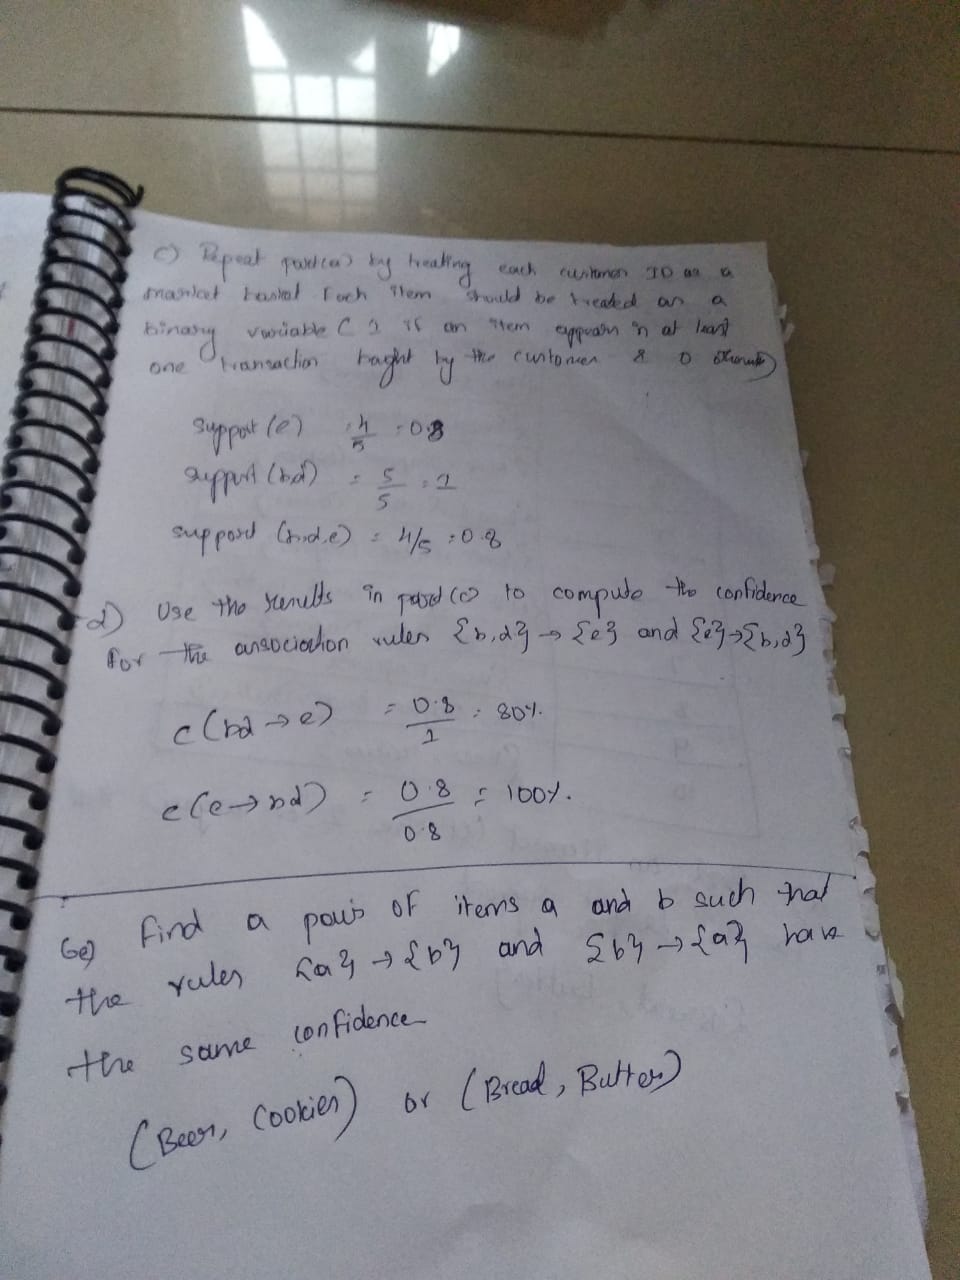 c) Repeat part(a) by treating each customer ID as a
market basket Each item should be treated as a
binary variable ( 1 if an item appears in at least
one transaction baght by the customer & 0 otherwise)
support (e) = 4/5 = 0.8
support (bd) = 5/5 = 1
support (b,d,e) = 4/5 = 0.8
d) Use the results in part (c) to compute the confidence
for the association rules {b,d} → {e} and {e} → {b,d}
c (bd → e) = 0.8/1 = 80%.
c (e → bd) = 0.8/0.8 = 100%.
6e) Find a pair of items a and b such that
the rules {a} → {b} and {b} → {a} have
the same confidence
(Beer, Cookies) or (Bread, Butter)